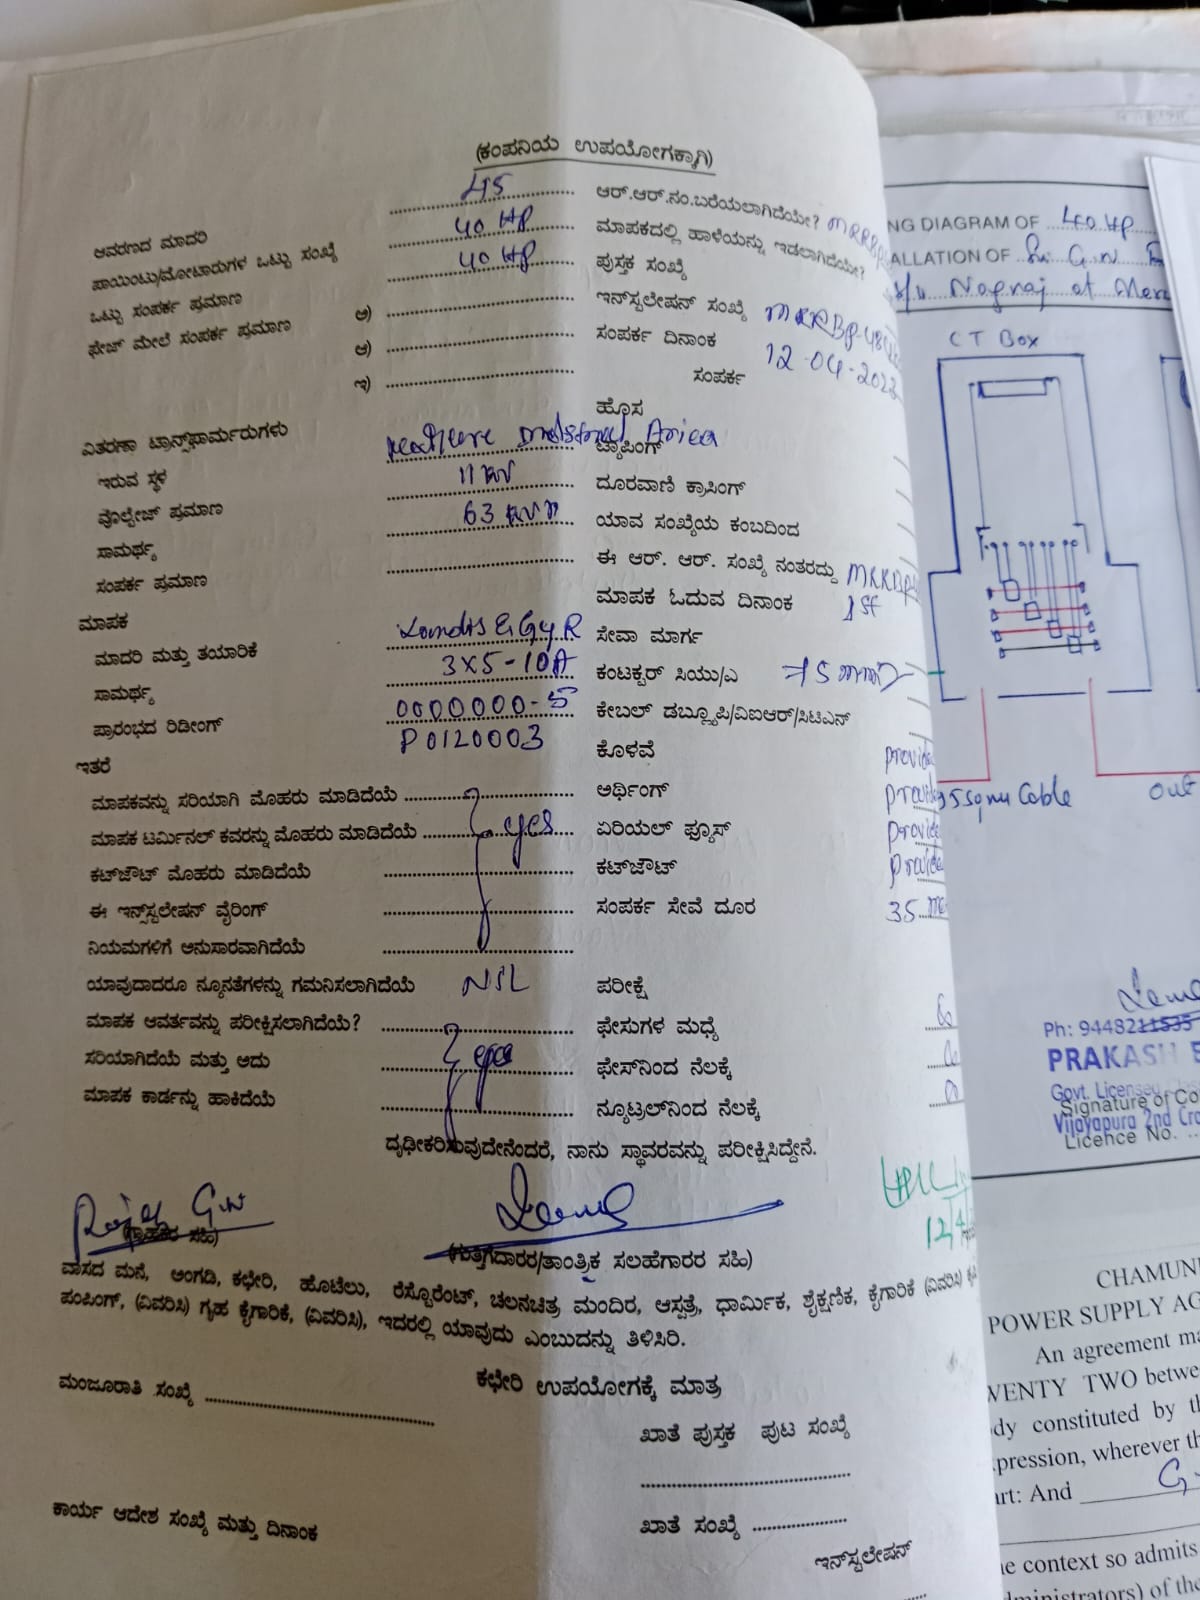 (ಕಂಪನಿಯ ಉಪಯೋಗಕ್ಕಾಗಿ)
ಆವರಣದ ಮಾದರಿ 45
ಪಾಯಿಂಟು/ಮೋಟಾರುಗಳ ಒಟ್ಟು ಸಂಖ್ಯೆ 40 HP
ಒಟ್ಟು ಸಂಪರ್ಕ ಪ್ರಮಾಣ 40 HP
ಫೇಜ್ ಮೇಲೆ ಸಂಪರ್ಕ ಪ್ರಮಾಣ ಅ)
ಆ)
ಇ)
ವಿತರಣಾ ಟ್ರಾನ್ಸ್‌ಫಾರ್ಮರುಗಳು
ಇರುವ ಸ್ಥಳ
ವೋಲ್ಟೇಜ್ ಪ್ರಮಾಣ 11 KV
ಸಾಮರ್ಥ್ಯ 63 KVA
ಸಂಪರ್ಕ ಪ್ರಮಾಣ
ಮಾಪಕ
ಮಾದರಿ ಮತ್ತು ತಯಾರಿಕೆ Landis & GyR
ಸಾಮರ್ಥ್ಯ 3X5-10A
ಪ್ರಾರಂಭದ ರಿಡೀಂಗ್ 0000000-5
P0120003
ಇತರೆ
ಮಾಪಕವನ್ನು ಸರಿಯಾಗಿ ಮೊಹರು ಮಾಡಿದೆಯೆ
ಮಾಪಕ ಟರ್ಮಿನಲ್ ಕವರನ್ನು ಮೊಹರು ಮಾಡಿದೆಯೆ yes
ಕಟ್‌ಜೌಟ್ ಮೊಹರು ಮಾಡಿದೆಯೆ
ಈ ಇನ್ಸ್‌ಸ್ಟಲೇಷನ್ ವೈರಿಂಗ್
ನಿಯಮಗಳಿಗೆ ಅನುಸಾರವಾಗಿದೆಯೆ
ಯಾವುದಾದರೂ ನ್ಯೂನತೆಗಳನ್ನು ಗಮನಿಸಲಾಗಿದೆಯೆ NIL
ಮಾಪಕ ಆವರ್ತವನ್ನು ಪರೀಕ್ಷಿಸಲಾಗಿದೆಯೆ?
ಸರಿಯಾಗಿದೆಯೆ ಮತ್ತು ಅದು
ಮಾಪಕ ಕಾರ್ಡನ್ನು ಹಾಕಿದೆಯೆ
ಆರ್.ಆರ್.ನಂ.ಬರೆಯಲಾಗಿದೆಯೇ?
ಮಾಪಕದಲ್ಲಿ ಹಾಳೆಯನ್ನು ಇಡಲಾಗಿದೆಯೇ?
ಪುಸ್ತಕ ಸಂಖ್ಯೆ
ಇನ್‌ಸ್ಟಲೇಷನ್ ಸಂಖ್ಯೆ
ಸಂಪರ್ಕ ದಿನಾಂಕ 12-04-2022
ಸಂಪರ್ಕ
ಹೊಸ
ಟ್ಯಾಪಿಂಗ್
ದೂರವಾಣಿ ಕ್ರಾಸಿಂಗ್
ಯಾವ ಸಂಖ್ಯೆಯ ಕಂಬದಿಂದ
ಈ ಆರ್. ಆರ್. ಸಂಖ್ಯೆ ನಂತರದ್ದು
ಮಾಪಕ ಓದುವ ದಿನಾಂಕ 1st
ಸೇವಾ ಮಾರ್ಗ
ಕಂಟಕ್ಟರ್ ಸಿಯು/ಎ
ಕೇಬಲ್ ಡಬ್ಲ್ಯೂಪಿ/ವಿಐಆರ್/ಸಿಟಿಎನ್
ಕೊಳವೆ provide
ಅರ್ಥಿಂಗ್ provide
ಏರಿಯಲ್ ಫ್ಯೂಸ್ provide
ಕಟ್‌ಜೌಟ್ provide
ಸಂಪರ್ಕ ಸೇವೆ ದೂರ 35
ಪರೀಕ್ಷೆ
ಫೇಸುಗಳ ಮಧ್ಯೆ
ಫೇಸ್‌ನಿಂದ ನೆಲಕ್ಕೆ
ನ್ಯೂಟ್ರಲ್‌ನಿಂದ ನೆಲಕ್ಕೆ
ದೃಢೀಕರಿಸುವುದೇನೆಂದರೆ, ನಾನು ಸ್ಥಾವರವನ್ನು ಪರೀಕ್ಷಿಸಿದ್ದೇನೆ.
(ಗ್ರಾಹಕರ ಸಹಿ)
(ಗುತ್ತಿಗೆದಾರರ/ತಾಂತ್ರಿಕ ಸಲಹೆಗಾರರ ಸಹಿ)
ವಾಸದ ಮನೆ, ಅಂಗಡಿ, ಕಛೇರಿ, ಹೊಟೆಲು, ರೆಸ್ಟೊರೆಂಟ್, ಚಲನಚಿತ್ರ ಮಂದಿರ, ಆಸ್ಪತ್ರೆ, ಧಾರ್ಮಿಕ, ಶೈಕ್ಷಣಿಕ, ಕೈಗಾರಿಕೆ (ವಿವರಿಸಿ)
ಪಂಪಿಂಗ್, (ವಿವರಿಸಿ) ಗೃಹ ಕೈಗಾರಿಕೆ, (ವಿವರಿಸಿ), ಇದರಲ್ಲಿ ಯಾವುದು ಎಂಬುದನ್ನು ತಿಳಿಸಿರಿ.
ಕಛೇರಿ ಉಪಯೋಗಕ್ಕೆ ಮಾತ್ರ
ಮಂಜೂರಾತಿ ಸಂಖ್ಯೆ
ಖಾತೆ ಪುಸ್ತಕ ಪುಟ ಸಂಖ್ಯೆ
ಕಾರ್ಯ ಆದೇಶ ಸಂಖ್ಯೆ ಮತ್ತು ದಿನಾಂಕ
ಖಾತೆ ಸಂಖ್ಯೆ
ಇನ್‌ಸ್ಟಲೇಷನ್
NG DIAGRAM OF 40 HP
ALLATION OF Sri G.N
S/o Nagraj at
CT Box
95sqmm Cable
out
Ph: 9448211535
PRAKASH E
Govt. Licensed
Signature of Co
Vijayapura 2nd Cro
Licence No.
CHAMUN
POWER SUPPLY AG
An agreement ma
WENTY TWO betwe
dy constituted by th
pression, wherever th
art: And
e context so admits
dministrators) of the